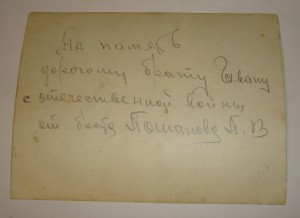 На память
дорогому брату Ивану
с отечественной войны
от брата Поманова П. В